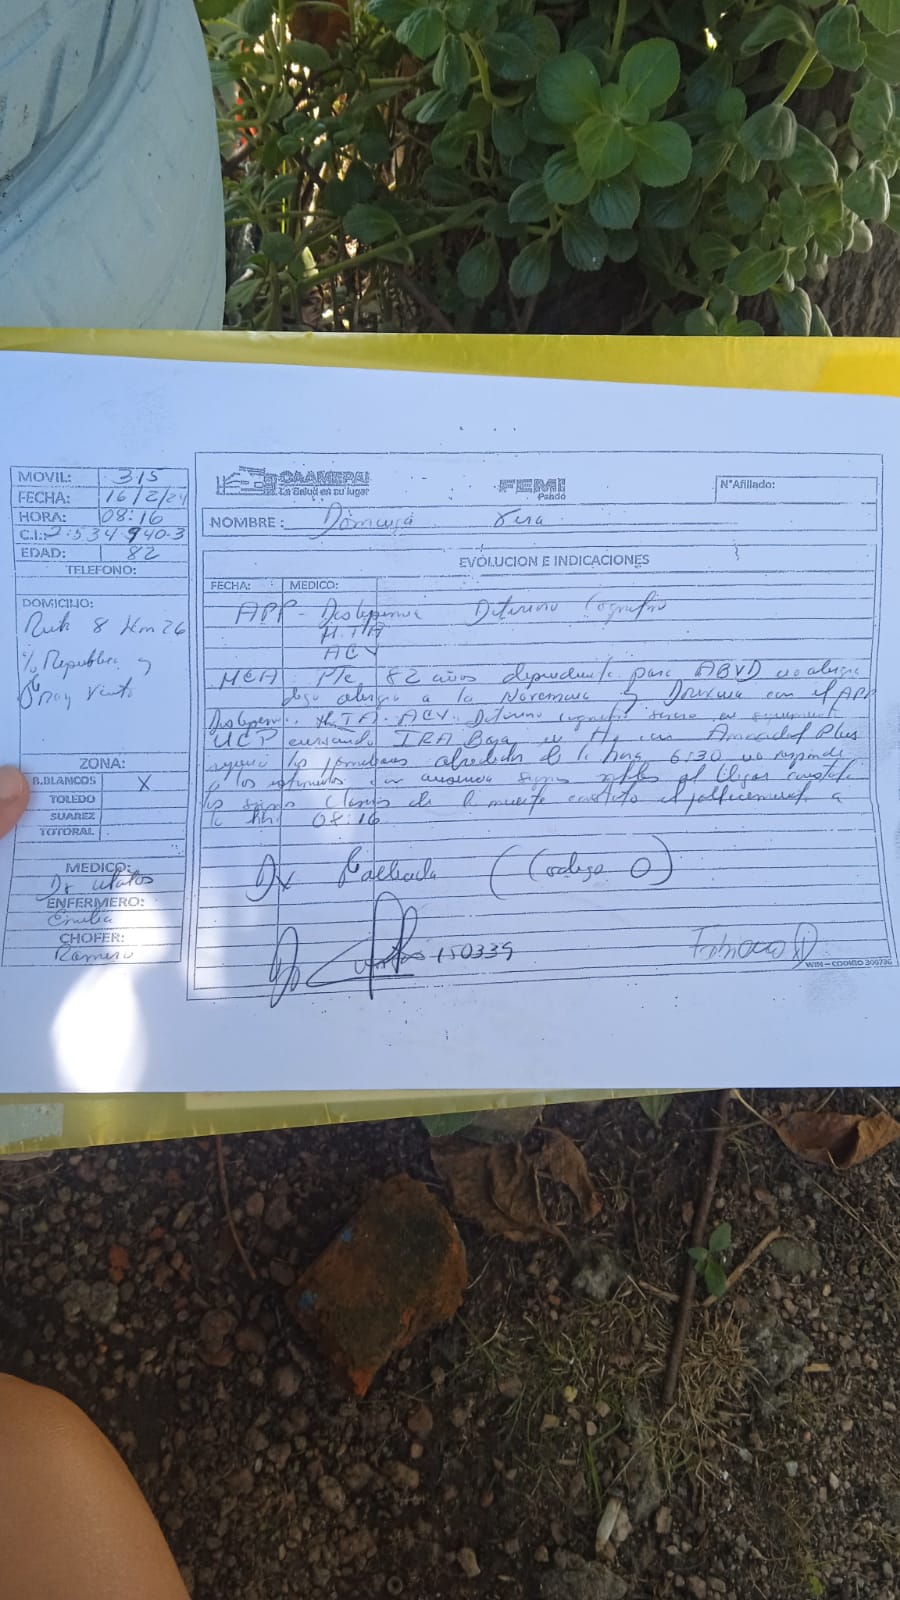 MOVIL: 315
FECHA: 16/2/24
HORA: 08:16
C.I.: 2.534940-3
EDAD: 82
TELEFONO:
DOMICILIO:
Ruta 8 Km 26
Republica y
ZONA:
B.BLANCOS X
TOLEDO
SUAREZ
TOTORAL
MEDICO:
Dr
ENFERMERO:
Emilia
CHOFER:
Ramiro
CAAMEPA
La Salud en su lugar
FEMI
Pando
N°Afiliado:
NOMBRE: Vera
EVOLUCION E INDICACIONES
FECHA: MEDICO:
APP - Dislipemia Deterioro Cognitivo
H.T.A
ACV
MCA Pte 82 años dependiente para ABVD no alergia
digo alergia a la Novemina y con el APP
Dislipemia. HTA. ACV. Deterioro cognitivo severo en seguimiento
UCP cursando IRA Baja en tto con Plus
los familiares alrededor de la hora 6:30 no responde
a los estimulos con ausencia signos al llegar constato
los signos de la muerte constato el fallecimiento a
la hr 08:16
Dx Fallecida (Codigo 0)
150339
WIN - CODIGO